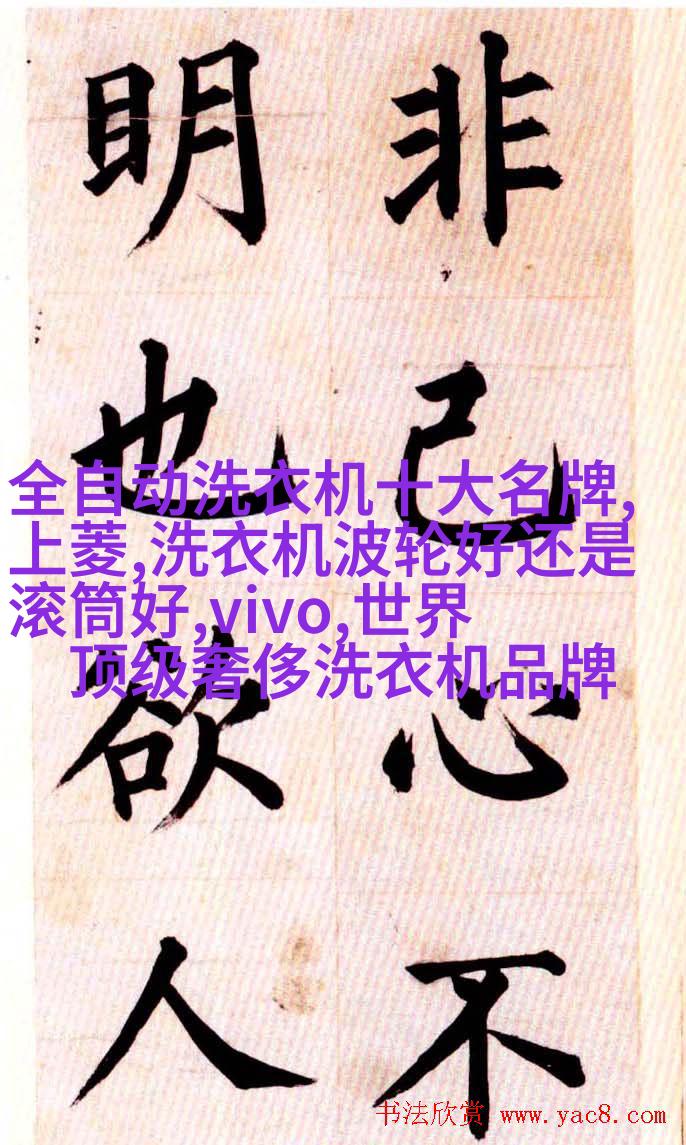 非己心不
明也欲人
全自动洗衣机十大名牌,
上菱,洗衣机波轮好还是
滚筒好,vivo,世界
顶级奢侈洗衣机品牌
书法欣赏 www.yac8.com